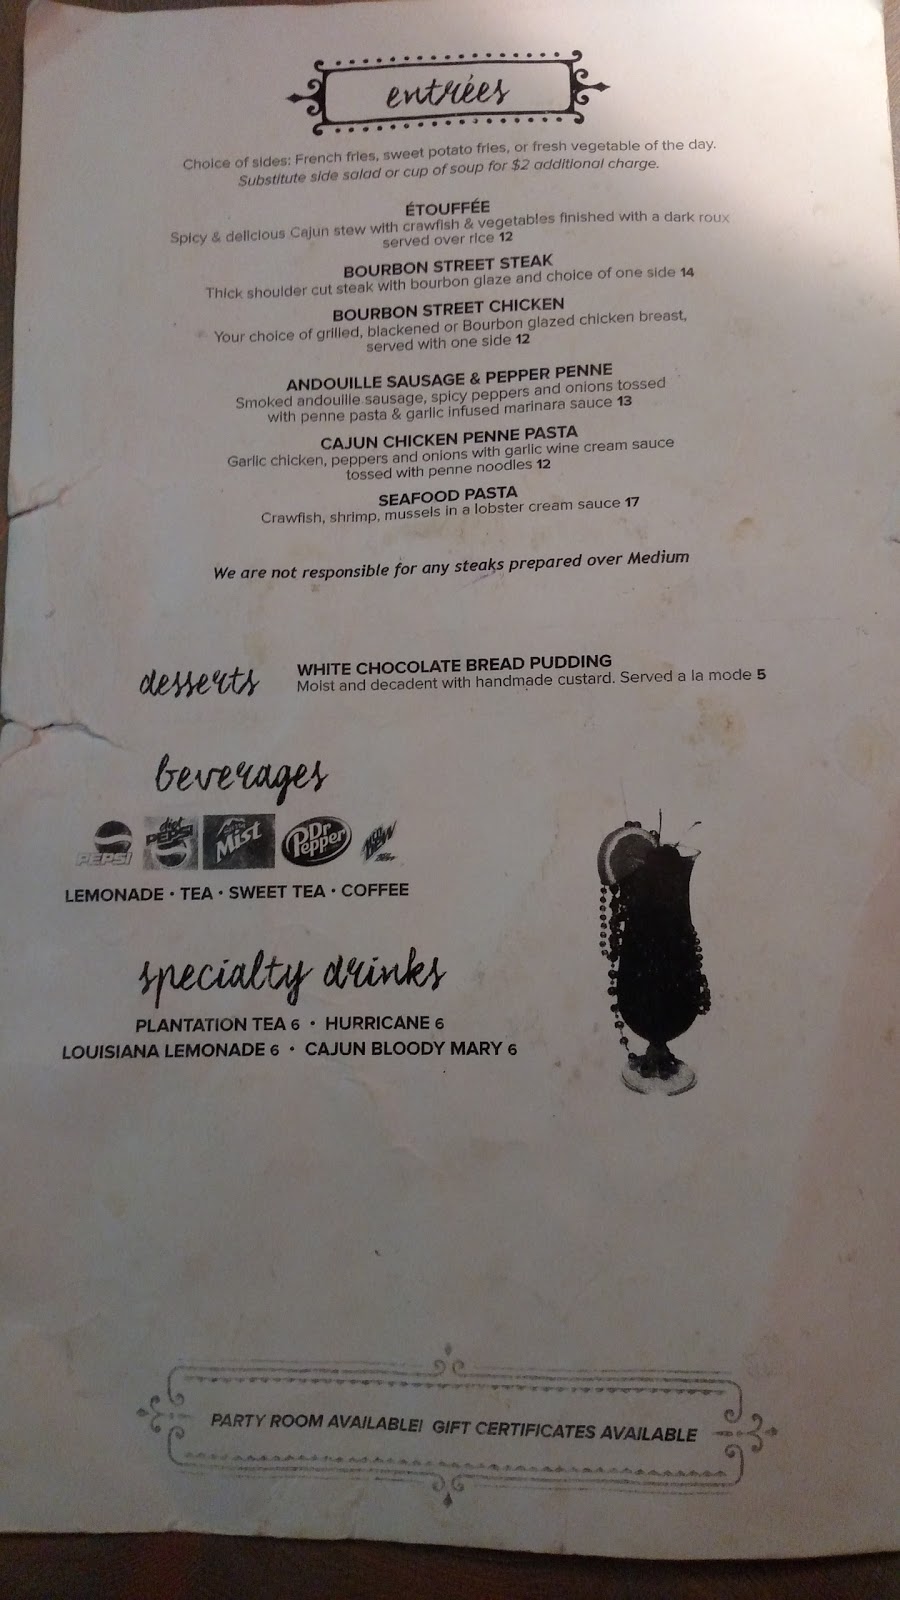 entrées
Choice of sides: French fries, sweet potato fries, or fresh vegetable of the day.
Substitute side salad or cup of soup for $2 additional charge.
ÉTOUFFÉE
Spicy & delicious Cajun stew with crawfish & vegetables finished with a dark roux
served over rice 12
BOURBON STREET STEAK
Thick shoulder cut steak with bourbon glaze and choice of one side 14
BOURBON STREET CHICKEN
Your choice of grilled, blackened or Bourbon glazed chicken breast,
served with one side 12
ANDOUILLE SAUSAGE & PEPPER PENNE
Smoked andouille sausage, spicy peppers and onions tossed
with penne pasta & garlic infused marinara sauce 13
CAJUN CHICKEN PENNE PASTA
Garlic chicken, peppers and onions with garlic wine cream sauce
tossed with penne noodles 12
SEAFOOD PASTA
Crawfish, shrimp, mussels in a lobster cream sauce 17
We are not responsible for any steaks prepared over Medium
desserts
WHITE CHOCOLATE BREAD PUDDING
Moist and decadent with handmade custard. Served a la mode 5
beverages
PEPSI
diet PEPSI
Mist
Dr Pepper
DEW
LEMONADE • TEA • SWEET TEA • COFFEE
specialty drinks
PLANTATION TEA 6 • HURRICANE 6
LOUISIANA LEMONADE 6 • CAJUN BLOODY MARY 6
PARTY ROOM AVAILABLE! GIFT CERTIFICATES AVAILABLE